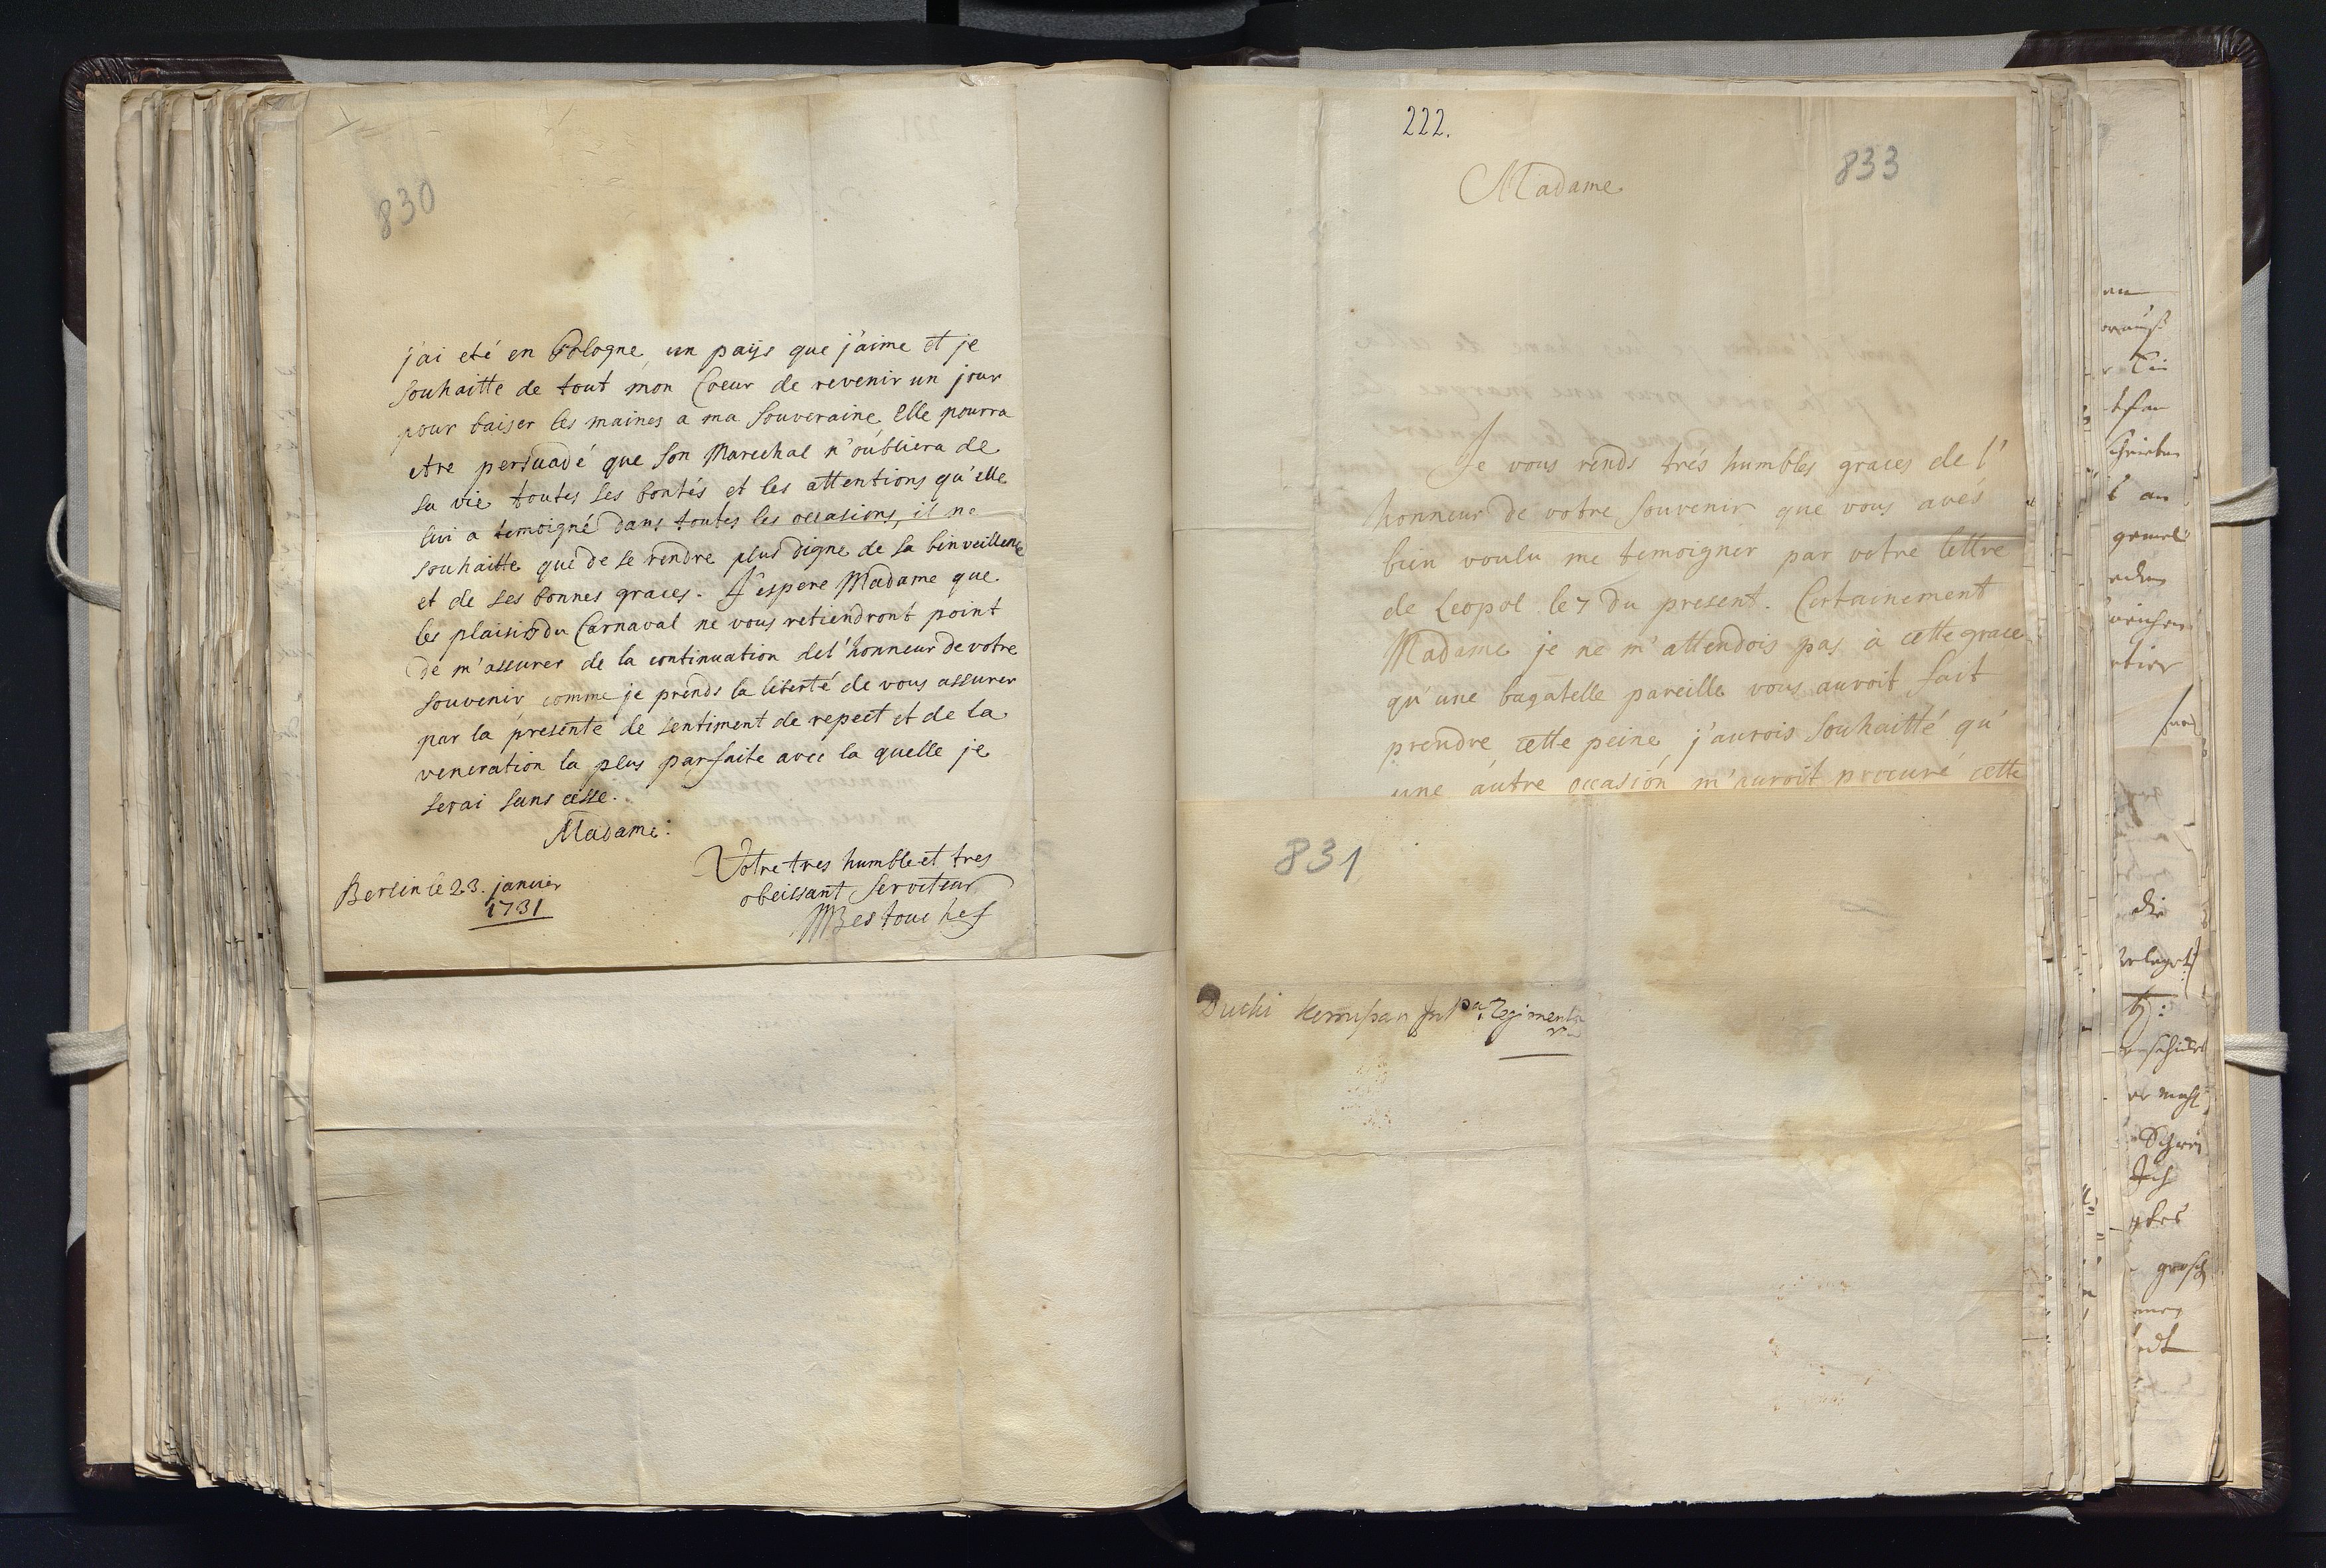 830
j'ai eté en Pologne, un paijs que j'aime et je
souhaitte de tout mon Coeur de revenir un jour
pour baiser les maines a ma Souveraine, Elle pourra
etre persuadé que son Marechal n'oubliera de
sa vie toutes ses bontés et les attentions qu'elle
lui a temoigné dans toutes les occasions, il ne
souhaitte que de se rendre plus digne de sa binveillence
et de ses bonnes graces. J'espere Madame que
les plaisirs du Carnaval ne vous retiendront point
de m'assurer de la continuation del'honneur de votre
souvenir comme je prends la liberté de vous assurer
par la presente de sentiment de repect et de la
veneration la plus parfaite avec la quelle je
serai sans cesse.
Madame:
Votre tres humble et tres
obeissant Serviteur
MBestouchef
Berlin le 23. janvier
1731
222.
833
Madame
Je vous rends trés humbles graces de l'
honneur de votre souvenir que vous avés
bien voulu me temoigner par votre lettre
de Leopol le 7 du present. Certainement
Madame je ne m'attendois pas à cette grace
qu'une bagatelle pareille vous auroit fait
prendre cette peine, j'aurois souhaitté qu'
une autre occasion m'auroit procuré cette
831
Duchi
an
die
Ich